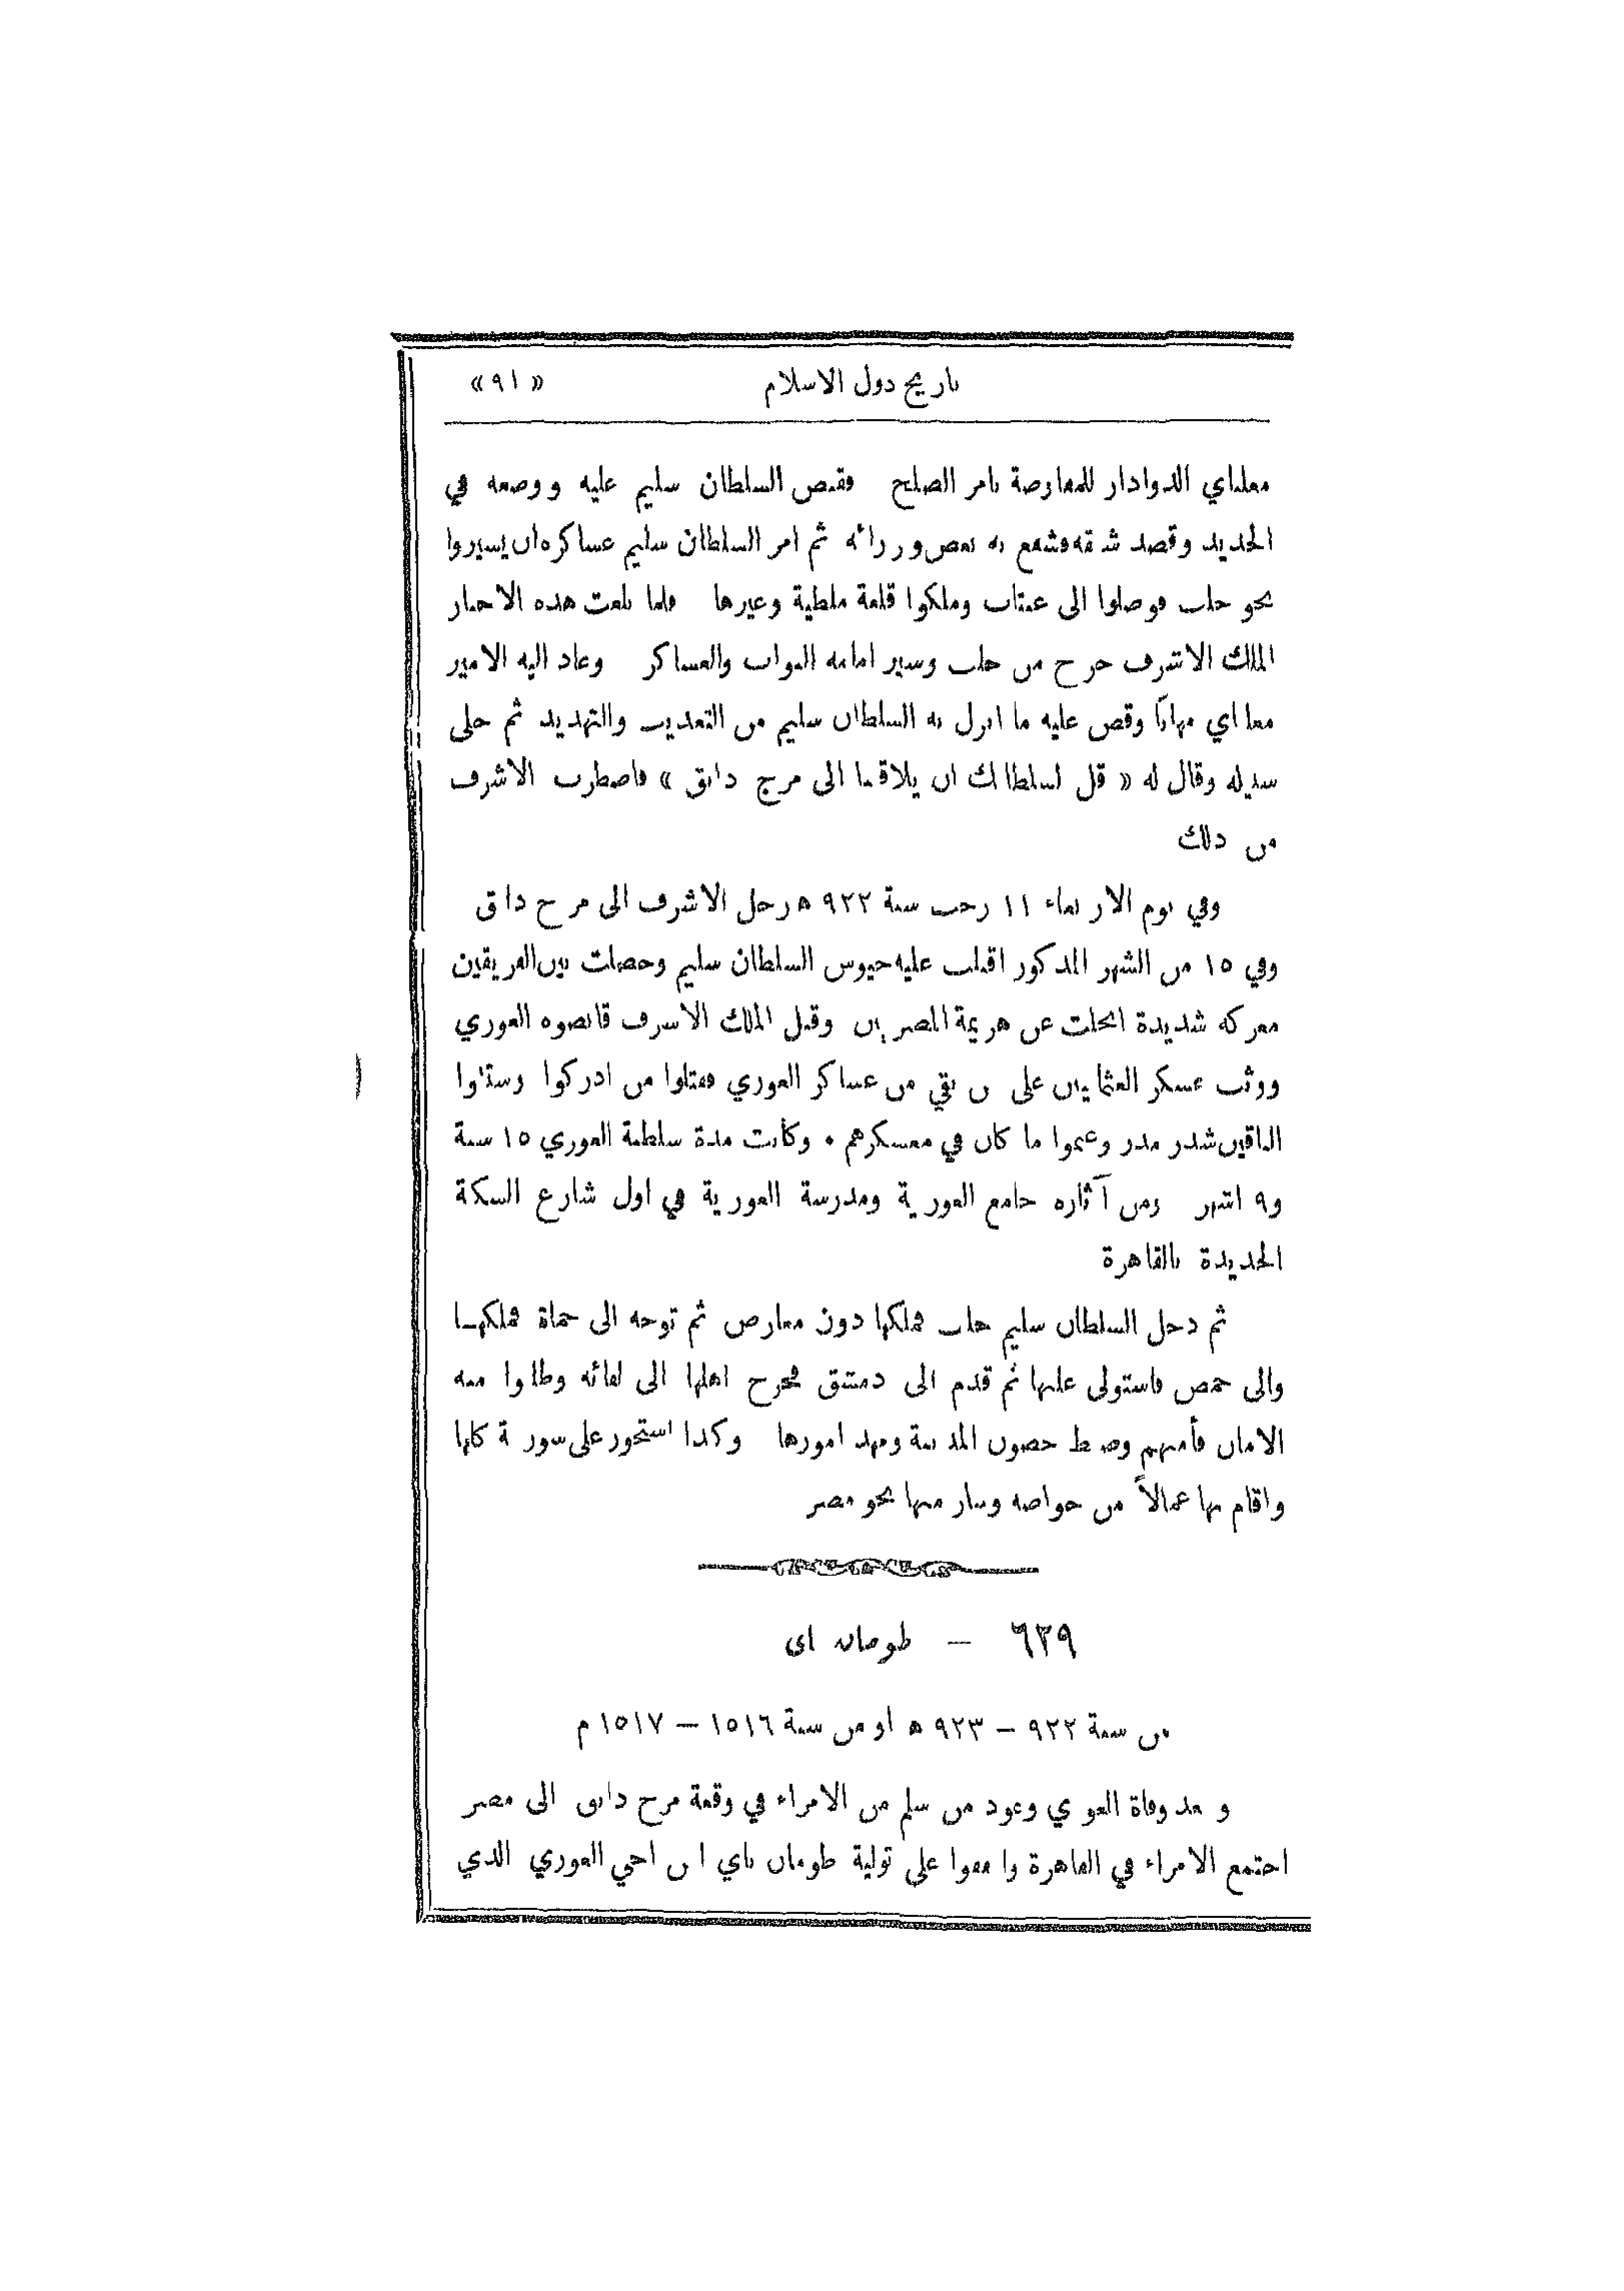 تاريخ دول الاسلام «٩١»
مغلباي الدوادار للمفاوضة بامر الصلح فقبض السلطان سليم عليه ووضعه في
الحديد وقصد شنقه فشفع به بعض وزرائه ثم امر السلطان سليم عساكره ان يسيروا
نحو حلب فوصلوا الى عينتاب وملكوا قلعة ملطية وغيرها فلما بلغت هذه الاخبار
الملك الاشرف خرج من حلب وسير امامه النواب والعساكر وعاد اليه الامير
مغلباي مهانًا وقص عليه ما انزل به السلطان سليم من التعذيب والتهديد ثم خلى
سبيله وقال له « قل لسلطانك ان يلاقينا الى مرج دابق » فاضطرب الاشرف
من ذلك
وفي يوم الاربعاء ١١ رجب سنة ٩٢٢ ه رحل الاشرف الى مرج دابق
وفي ١٥ من الشهر المذكور اقبلت عليه جيوش السلطان سليم وحصلت بين الفريقين
معركة شديدة انجلت عن هزيمة المصريين وقتل الملك الاشرف قانصوه الغوري
ووثب عسكر العثمانيين على من بقي من عساكر الغوري فقتلوا من ادركوا وشتتوا
الباقين شذر مذر وغنموا ما كان في معسكرهم . وكانت مدة سلطنة الغوري ١٥ سنة
و٩ اشهر ومن آثاره جامع الغورية ومدرسة الغورية في اول شارع السكة
الجديدة بالقاهرة
ثم دخل السلطان سليم حلب فملكها دون معارض ثم توجه الى حماة فملكها
والى حمص فاستولى عليها ثم قدم الى دمشق فخرج اهلها الى لقائه وطلبوا منه
الامان فأمنهم وضبط حصون المدينة ومهد امورها وكذا استحوز على سورية كلها
واقام بها عمالاً من خواصه وسار منها نحو مصر
٦٣٩ — طومان باي
من سنة ٩٢٢ — ٩٢٣ ه او من سنة ١٥١٦ — ١٥١٧ م
وبعد وفاة الغوري وعود من سلم من الامراء في وقعة مرج دابق الى مصر
اجتمع الامراء في القاهرة واتفقوا على تولية طومان باي ابن اخي الغوري الذي